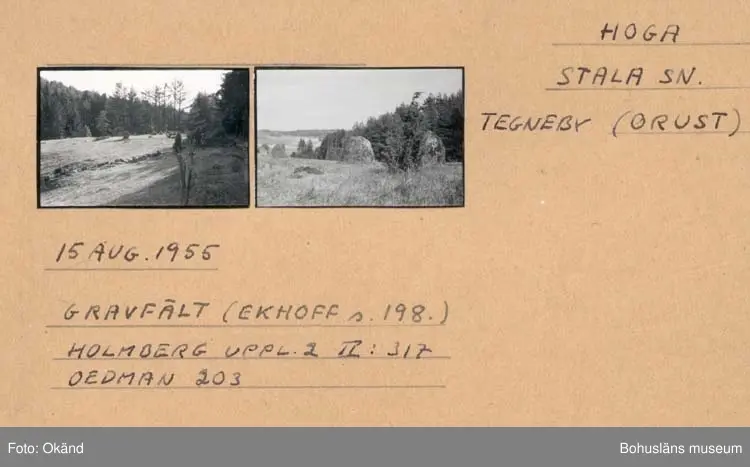 HOGA
STALA SN.
TEGNEBY (ORUST)
15 AUG. 1955
GRAVFÄLT (EKHOFF s. 198.)
HOLMBERG UPPL. 2 II: 317
OEDMAN 203
Foto: Okänd
Bohusläns museum